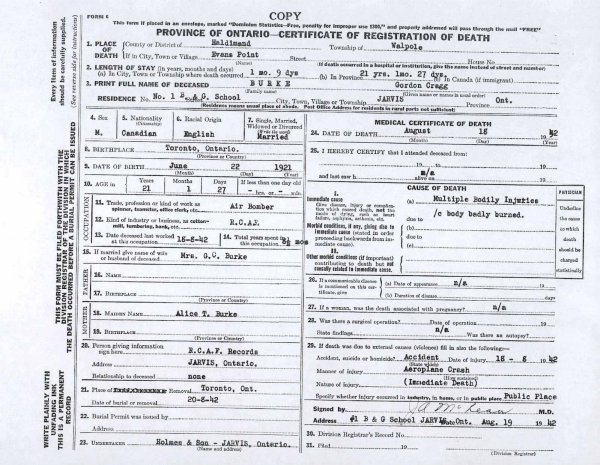 FORM 6
COPY
This form if placed in an envelope, marked "Dominion Statistics—Free, penalty for improper use $300," and properly addressed will pass through the mail "FREE"
PROVINCE OF ONTARIO—CERTIFICATE OF REGISTRATION OF DEATH
Every item of information should be carefully supplied.
(See reverse side for instructions)
THIS FORM MUST BE FILED FORTHWITH WITH THE DIVISION REGISTRAR OF THE DIVISION IN WHICH THE DEATH OCCURRED BEFORE A BURIAL PERMIT CAN BE ISSUED
WRITE PLAINLY WITH UNFADING INK
THIS IS A PERMANENT RECORD
1. PLACE OF DEATH
County or District of Haldimand Township of Walpole
If in City, Town or Village Evans Point Street
(If death occurred in a hospital or institution, give the name instead of street and number)
2. LENGTH OF STAY (in years, months and days)
(a) In City, Town, or Township where death occurred 1 mo. 9 dys (b) In Province 21 yrs. 1mo. 27 dys. (c) In Canada (if immigrant)
3. PRINT FULL NAME OF DECEASED BURKE Gordon Cragg
(Family name) (Given name or names in usual order)
RESIDENCE No. 1 B & G. School JARVIS Ont.
(Residence means usual place of abode. Post Office Address for residents in rural parts not sufficient)
4. Sex M.
5. Nationality (Citizenship) Canadian
6. Racial Origin English
7. Single, Married, Widowed or Divorced Married
8. BIRTHPLACE Toronto, Ontario.
(Province or Country)
9. DATE OF BIRTH June 22 1921
10. AGE in Years 21 Months 1 Days 27 If less than one day old
hrs. or min.
OCCUPATION
11. Trade, profession or kind of work as spinner, teamster, office clerk, etc. Air Bomber
12. Kind of industry or business, as cotton-mill, lumbering, bank, etc. R.C.A.F.
13. Date deceased last worked at this occupation 18-8-42
14. Total years spent in this occupation mos
15. If married give name of wife or husband of deceased Mrs. G.C. Burke
FATHER
16. NAME
17. BIRTHPLACE
(Province or Country)
MOTHER
18. MAIDEN NAME Alice T. Burke
19. BIRTHPLACE
(Province or Country)
20. Person giving information sign here R.C.A.F. Records
Address JARVIS, Ontario.
Relationship to deceased none
21. Place of Removal Toronto, Ont.
Date of burial or removal 20-8-42
22. Burial Permit was issued by
Address
23. UNDERTAKER Holmes & Son - JARVIS, Ontario.
(Name and address)
MEDICAL CERTIFICATE OF DEATH
24. DATE OF DEATH August 18 1942
25. I HEREBY CERTIFY that I attended deceased from:
19 to 19
and last saw h n/a alive on 19
CAUSE OF DEATH
I.
Immediate cause
Give disease, injury or complication which caused death, not the mode of dying, such as heart failure, asphyxia, asthenia, etc.
(a) Multiple Bodily Injuries
due to /c body badly burned.
Morbid conditions, if any, giving rise to immediate cause (stated in order proceeding backwards from immediate cause).
(b)
due to
(c)
II.
Other morbid conditions (if important) contributing to death but not causally related to immediate cause.
PHYSICIAN
Underline the cause to which death should be charged statistically
26. If a communicable disease is mentioned on this certificate, give
(a) Date of appearance n/a 19
(b) Duration of disease days
27. If a woman, was the death associated with pregnancy? n/a
28. Was there a surgical operation? Date of operation 19
State findings n/a Was there an autopsy?
29. If death was due to external causes (violence) fill in also the following—
Accident, suicide or homicide? Accident Date of injury 18 - 8 1942
(State which)
Manner of injury Aeroplane Crash
Nature of injury (Immediate Death)
Specify whether injury occurred in industry, in home, or in public place Public Place
Signed by M.D.
Address #1 B & G School JARVIS Ont. Aug. 19 1942
30. Division Registrar's Record No.
31. Filed 19
(Division Registrar)